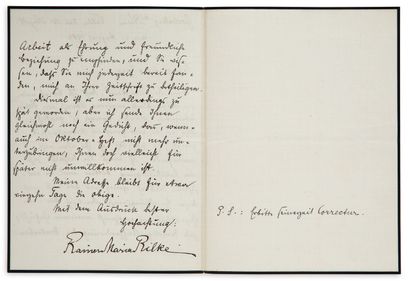 Arbeit als Ehrung und freundliche
Beziehung zu empfinden, und Sie wis-
sen, daß Sie mich jederzeit bereit fan-
den, mich an Ihrer Zeitschrift zu betheiligen.
Diesmal ist es nun allerdings zu
spät geworden, aber ich sende Ihnen
gleichwohl noch ein Gedicht, das, wenn-
auch im Oktober-Heft nicht mehr un-
terzubringen, Ihnen doch vielleicht für
später nicht unwillkommen ist.
Meine Adresse bleibt für etwa
vierzehn Tage die obige.
Mit dem Ausdruck bester
Hochachtung:
Rainer Maria Rilke
P. S.: Erbitte seinerzeit Correctur.